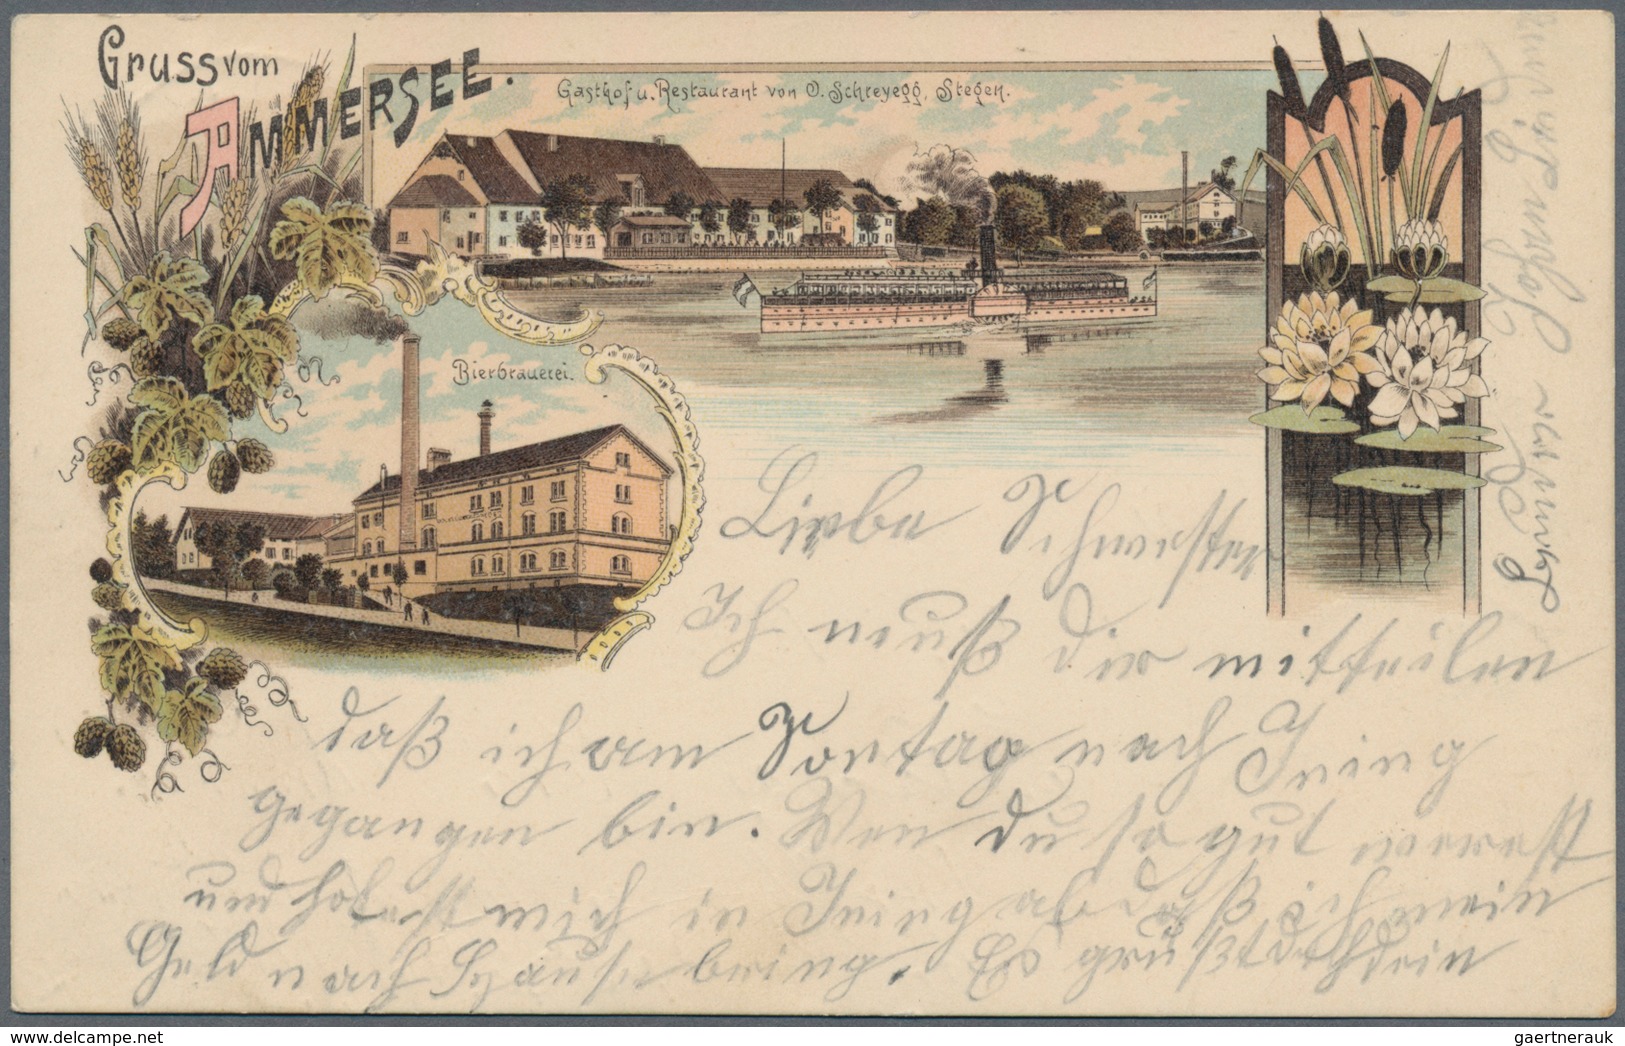 Gruss vom
AMMERSEE.
Gasthof u. Restaurant von O. Schreyegg, Stegen.
Bierbrauerei.
Liebe Schwester
Ich muß dir mitteilen
daß ich am Sontag nach Ining
gegangen bin. Wen du so gut werest
und holest mich in Ining ab daß ich mein
Geld nach Hause bring. Es grüßt dich dein
gaertnerauk